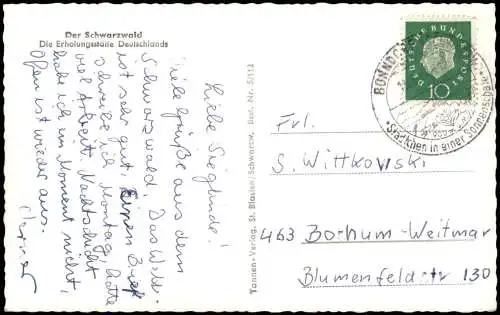 Der Schwarzwald
Die Erholungsstätte Deutschlands
Liebe Sieglinde!
Viele Grüße aus dem
Schwarzwald. Das Wetter
ist sehr gut. Einen Brief
schreibe ich Montag. Hatte
viel Arbeit. Nachtschicht
habe ich im Moment nicht,
Ofen ist wieder aus.
Werner
Tannen-Verlag, St. Blasien/Schwarzw. Best. Nr. 5/112
DEUTSCHE BUNDESPOST
10
BONNDORF
Städtchen in einer Sonnen
Frl.
S. Wittkowski
463 Bochum-Weitmar
Blumenfeldstr 130